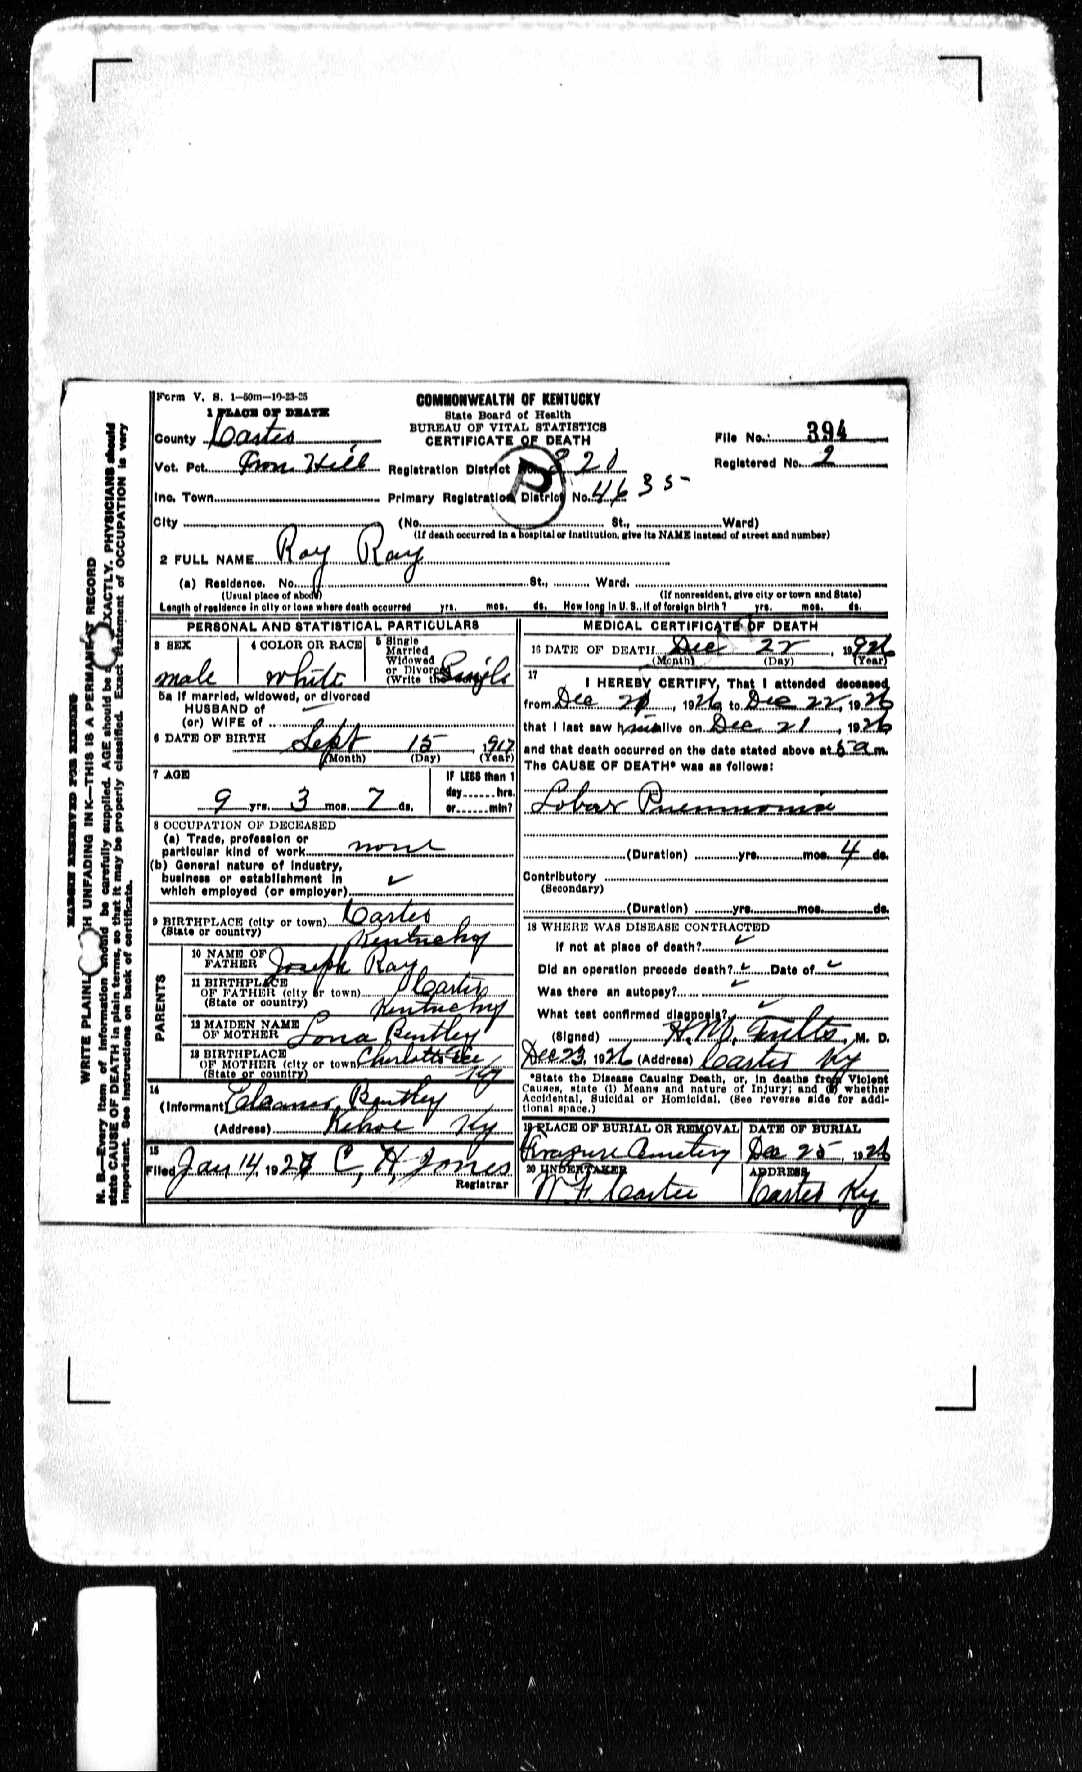 Form V. S. 1—50m—10-23-25
COMMONWEALTH OF KENTUCKY
State Board of Health
BUREAU OF VITAL STATISTICS
CERTIFICATE OF DEATH
1 PLACE OF DEATH
County Carter
File No. 394
Vot. Pct. Iron Hill
Registration District No. 820
Registered No. 2
Inc. Town
Primary Registration District No. 4635
City (No. St., Ward)
(If death occurred in a hospital or institution, give its NAME instead of street and number)
2 FULL NAME Roy Ray
(a) Residence. No. St., Ward.
(Usual place of abode) (If nonresident, give city or town and State)
Length of residence in city or town where death occurred yrs. mos. ds. How long in U. S., if of foreign birth? yrs. mos. ds.
PERSONAL AND STATISTICAL PARTICULARS
3 SEX male
4 COLOR OR RACE white
5 Single Married Widowed or Divorced (Write the Single
5a If married, widowed, or divorced
HUSBAND of
(or) WIFE of
6 DATE OF BIRTH Sept 15, 1917
(Month) (Day) (Year)
7 AGE 9 yrs. 3 mos. 7 ds.
IF LESS than 1
day hrs.
or min?
8 OCCUPATION OF DECEASED
(a) Trade, profession or
particular kind of work none
(b) General nature of industry,
business or establishment in
which employed (or employer) ✓
9 BIRTHPLACE (city or town) Carter
(State or country) Kentucky
PARENTS
10 NAME OF FATHER Joseph Ray
11 BIRTHPLACE
OF FATHER (city or town) Carter
(State or country) Kentucky
12 MAIDEN NAME
OF MOTHER Lona Bentley
13 BIRTHPLACE
OF MOTHER (city or town)
(State or country) Ky
14
(Informant) Eleanor Bentley
(Address) Kehoe Ky
15
Filed Jan 14, 1927 C. H. Jones
Registrar
MEDICAL CERTIFICATE OF DEATH
16 DATE OF DEATH Dec 22, 1926
(Month) (Day) (Year)
17
I HEREBY CERTIFY, That I attended deceased
from Dec 21, 1926, to Dec 22, 1926
that I last saw him alive on Dec 21, 1926
and that death occurred on the date stated above at 5 a m.
The CAUSE OF DEATH* was as follows:
Lobar Pneumonia
(Duration) yrs. mos. 4 ds.
Contributory
(Secondary)
(Duration) yrs. mos. ds.
18 WHERE WAS DISEASE CONTRACTED
If not at place of death? ✓
Did an operation precede death? ✓ Date of ✓
Was there an autopsy? ✓
What test confirmed diagnosis? ✓
(Signed) H. M. Fults, M. D.
Dec 23, 1926 (Address) Carter Ky
*State the Disease Causing Death, or, in deaths from Violent
Causes, state (1) Means and nature of Injury; and (2) whether
Accidental, Suicidal or Homicidal. (See reverse side for addi-
tional space.)
19 PLACE OF BURIAL OR REMOVAL
DATE OF BURIAL
Cemetery
Dec 25, 1926
20 UNDERTAKER
ADDRESS
W F Carter
Carter Ky
MARGIN RESERVED FOR BINDING
WRITE PLAINLY WITH UNFADING INK—THIS IS A PERMANENT RECORD
N. B.—Every item of information should be carefully supplied. AGE should be EXACTLY. PHYSICIANS should
state CAUSE OF DEATH in plain terms, so that it may be properly classified. Exact statement of OCCUPATION is very
important. See instructions on back of certificate.